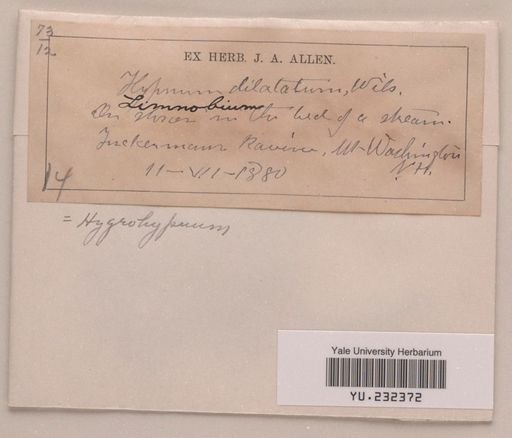 73
12
EX HERB. J. A. ALLEN.
Hypnum dilatatum, Wils.
Limnobium
On stones in the bed of a stream.
Tuckermans Ravine, Mt Washington
N.H.
11-VII-1880
14
= Hygrohypnum
Yale University Herbarium
YU.232372